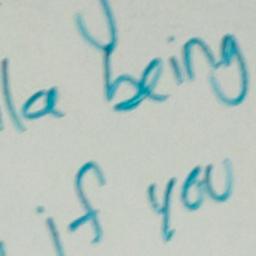 la being
if you